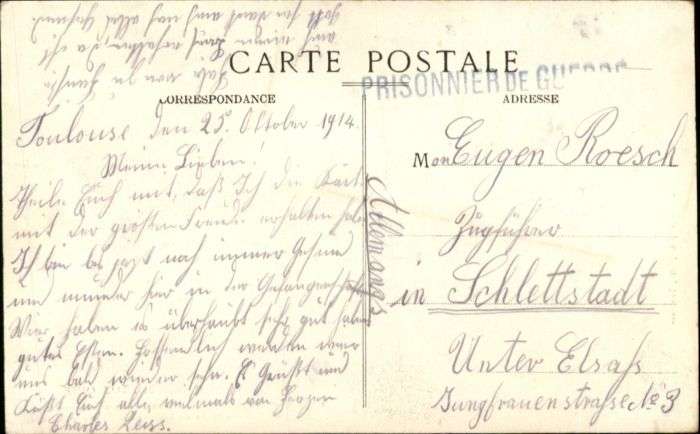 CARTE POSTALE
PRISONNIER DE GUERRE
CORRESPONDANCE
ADRESSE
Toulouse den 25. Oktober 1914.
Meine Lieben!
Theile Euch mit, daß Ich die Karte
mit der größten Freude erhalten habe
Ich bin bis jezt noch immer Gesund
und munder hier in der Gefangenschaft
Wier haben es überhaubt sehr gut haben
gutes Essen. Hoffendlich werden wier
uns bald wieder sehn. Es Grüßt und
Küßt Euch alle, vielmals von Herzen
Charles Reiss.
Allemangs
Mon Eugen Roesch
Zugführer
in Schlettstadt
Unter Elsaß
Jungfrauenstraße No 3